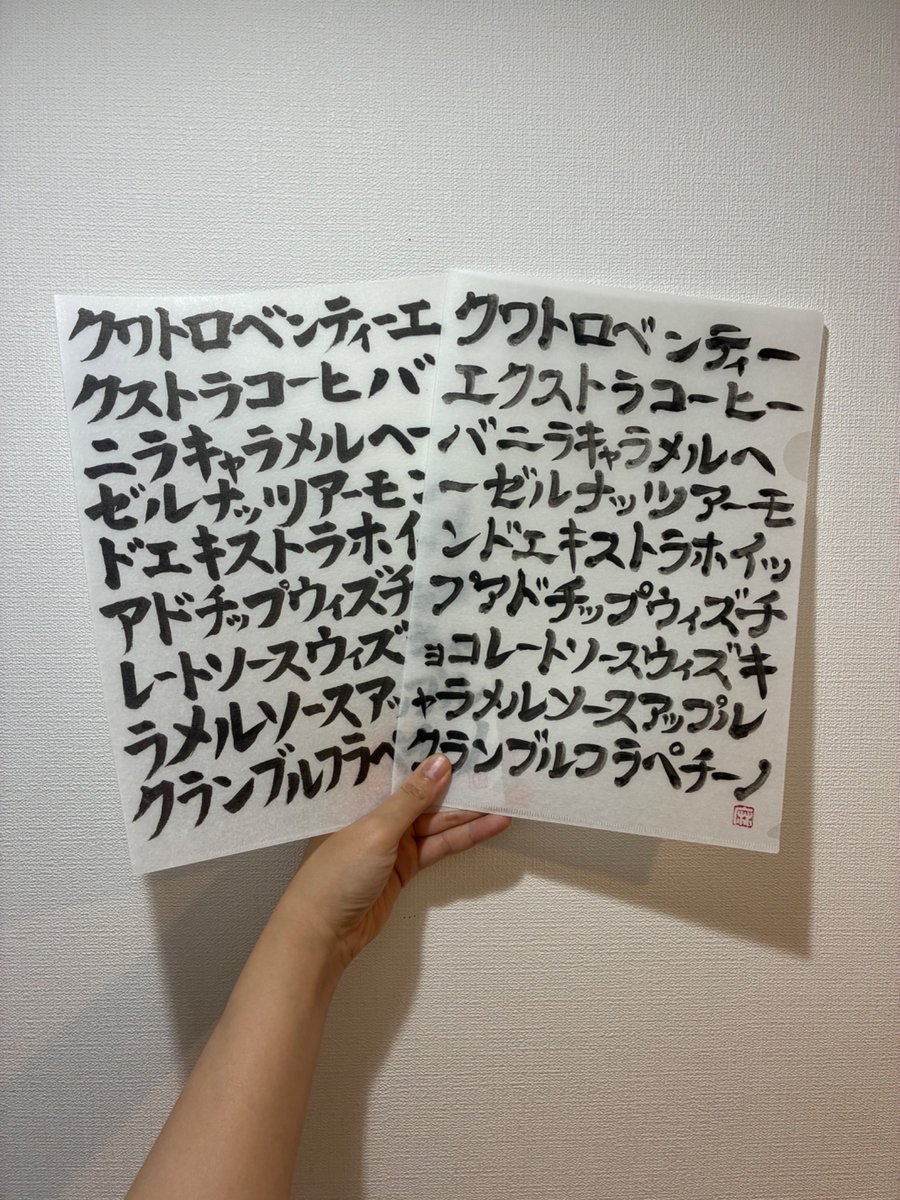 クワトロベンティーエ
クストラコーヒーバ
ニラキャラメルヘー
ゼルナッツアーモン
ドエキストラホイ
アドチップウィズチ
レートソースウィズ
ラメルソースアッ
クランブルフラペ
クワトロベンティー
エクストラコーヒー
バニラキャラメルヘ
ーゼルナッツアーモ
ンドエキストラホイッ
プアドチップウィズチ
ョコレートソースウィズキ
ャラメルソースアップル
クランブルフラペチーノ